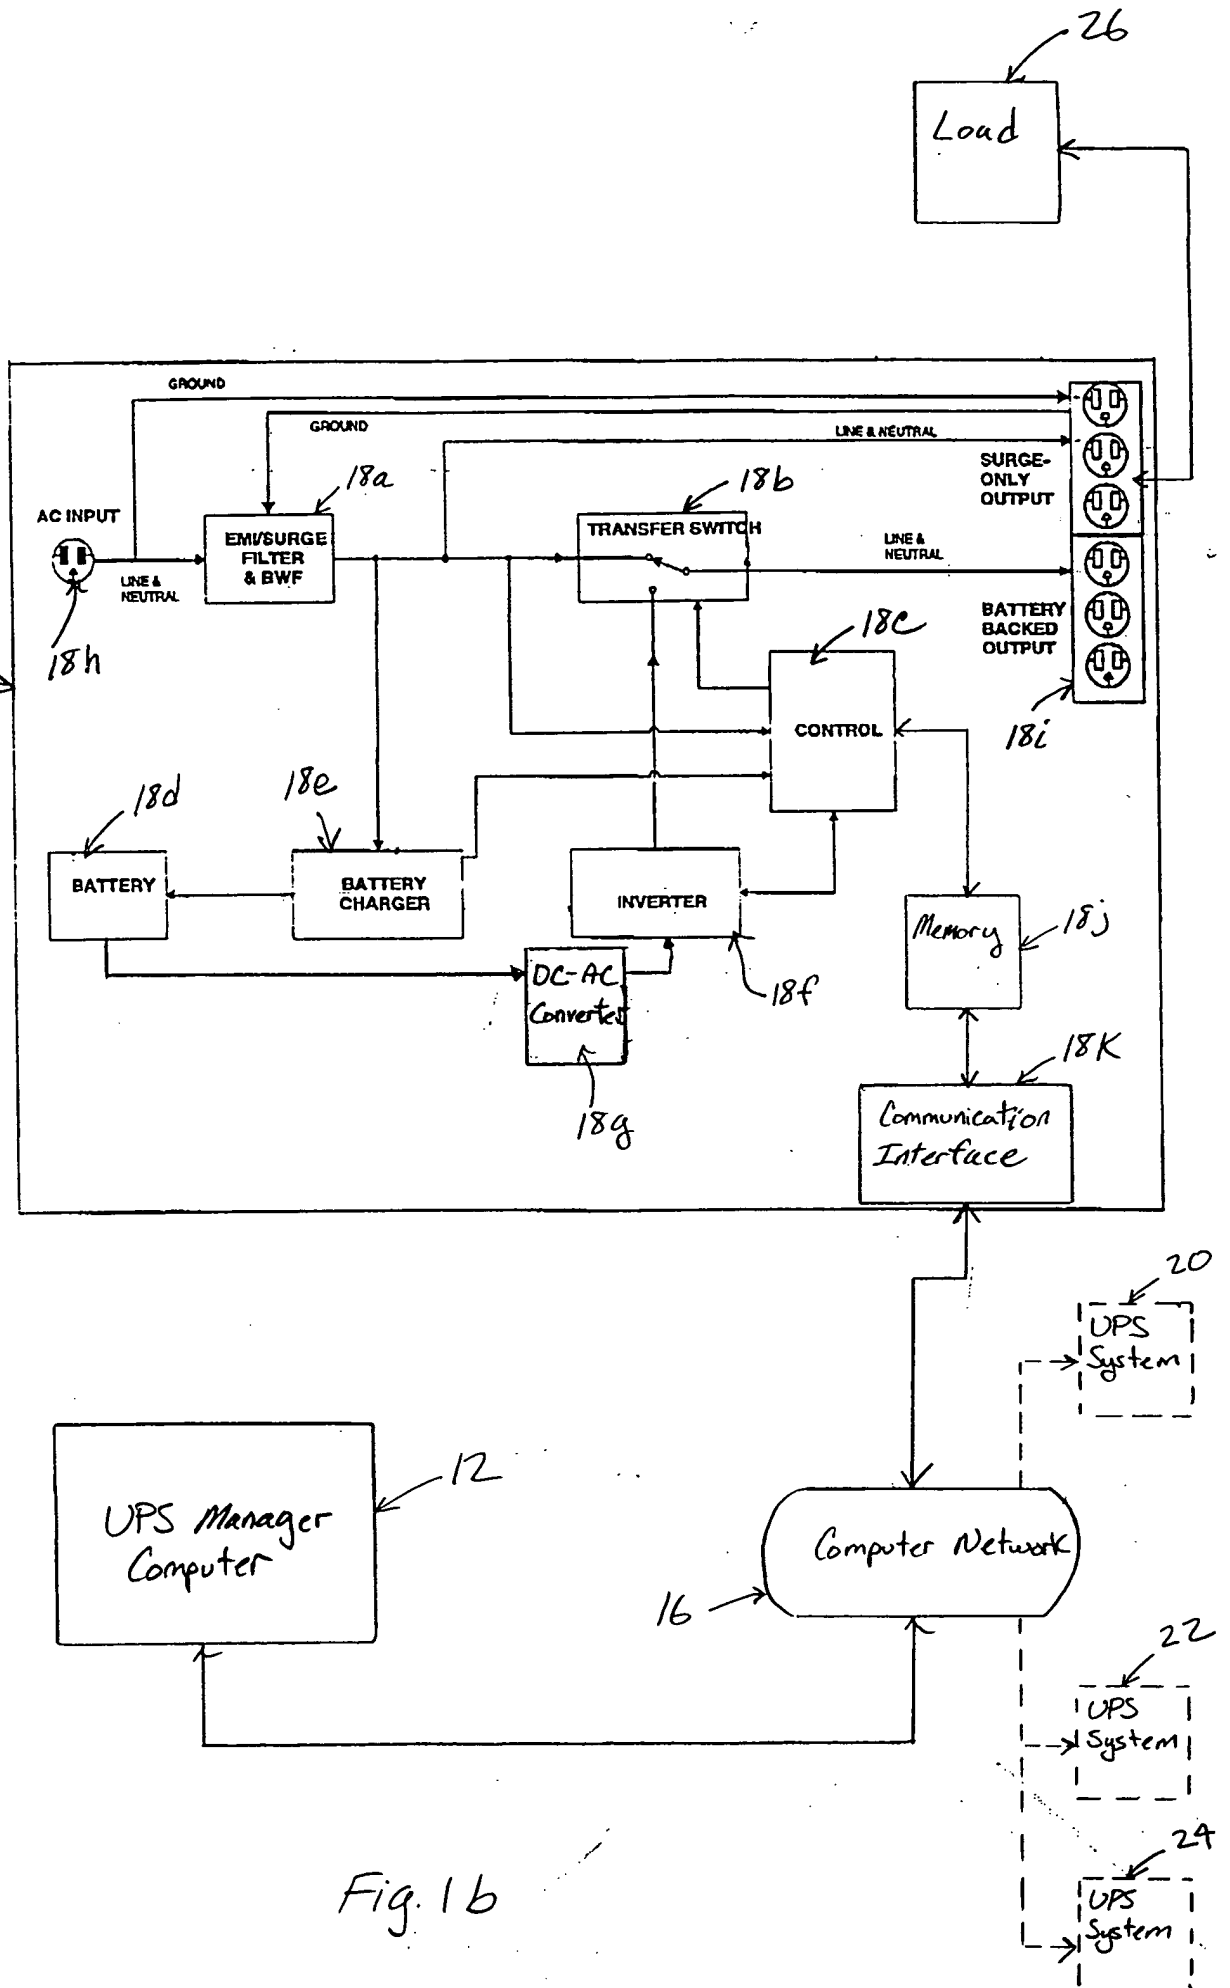 26
Load
GROUND
GROUND
LINE & NEUTRAL
18a
18b
SURGE-
ONLY
OUTPUT
AC INPUT
EMI/SURGE
FILTER
& BWF
TRANSFER SWITCH
LINE &
NEUTRAL
LINE &
NEUTRAL
18h
18c
BATTERY
BACKED
OUTPUT
CONTROL
18i
18d
18e
BATTERY
BATTERY
CHARGER
INVERTER
Memory
18j
DC-AC
Converter
18f
18g
18K
Communication
Interface
20
UPS
System
12
UPS Manager
Computer
Computer Network
16
22
UPS
System
24
UPS
System
Fig. 1b